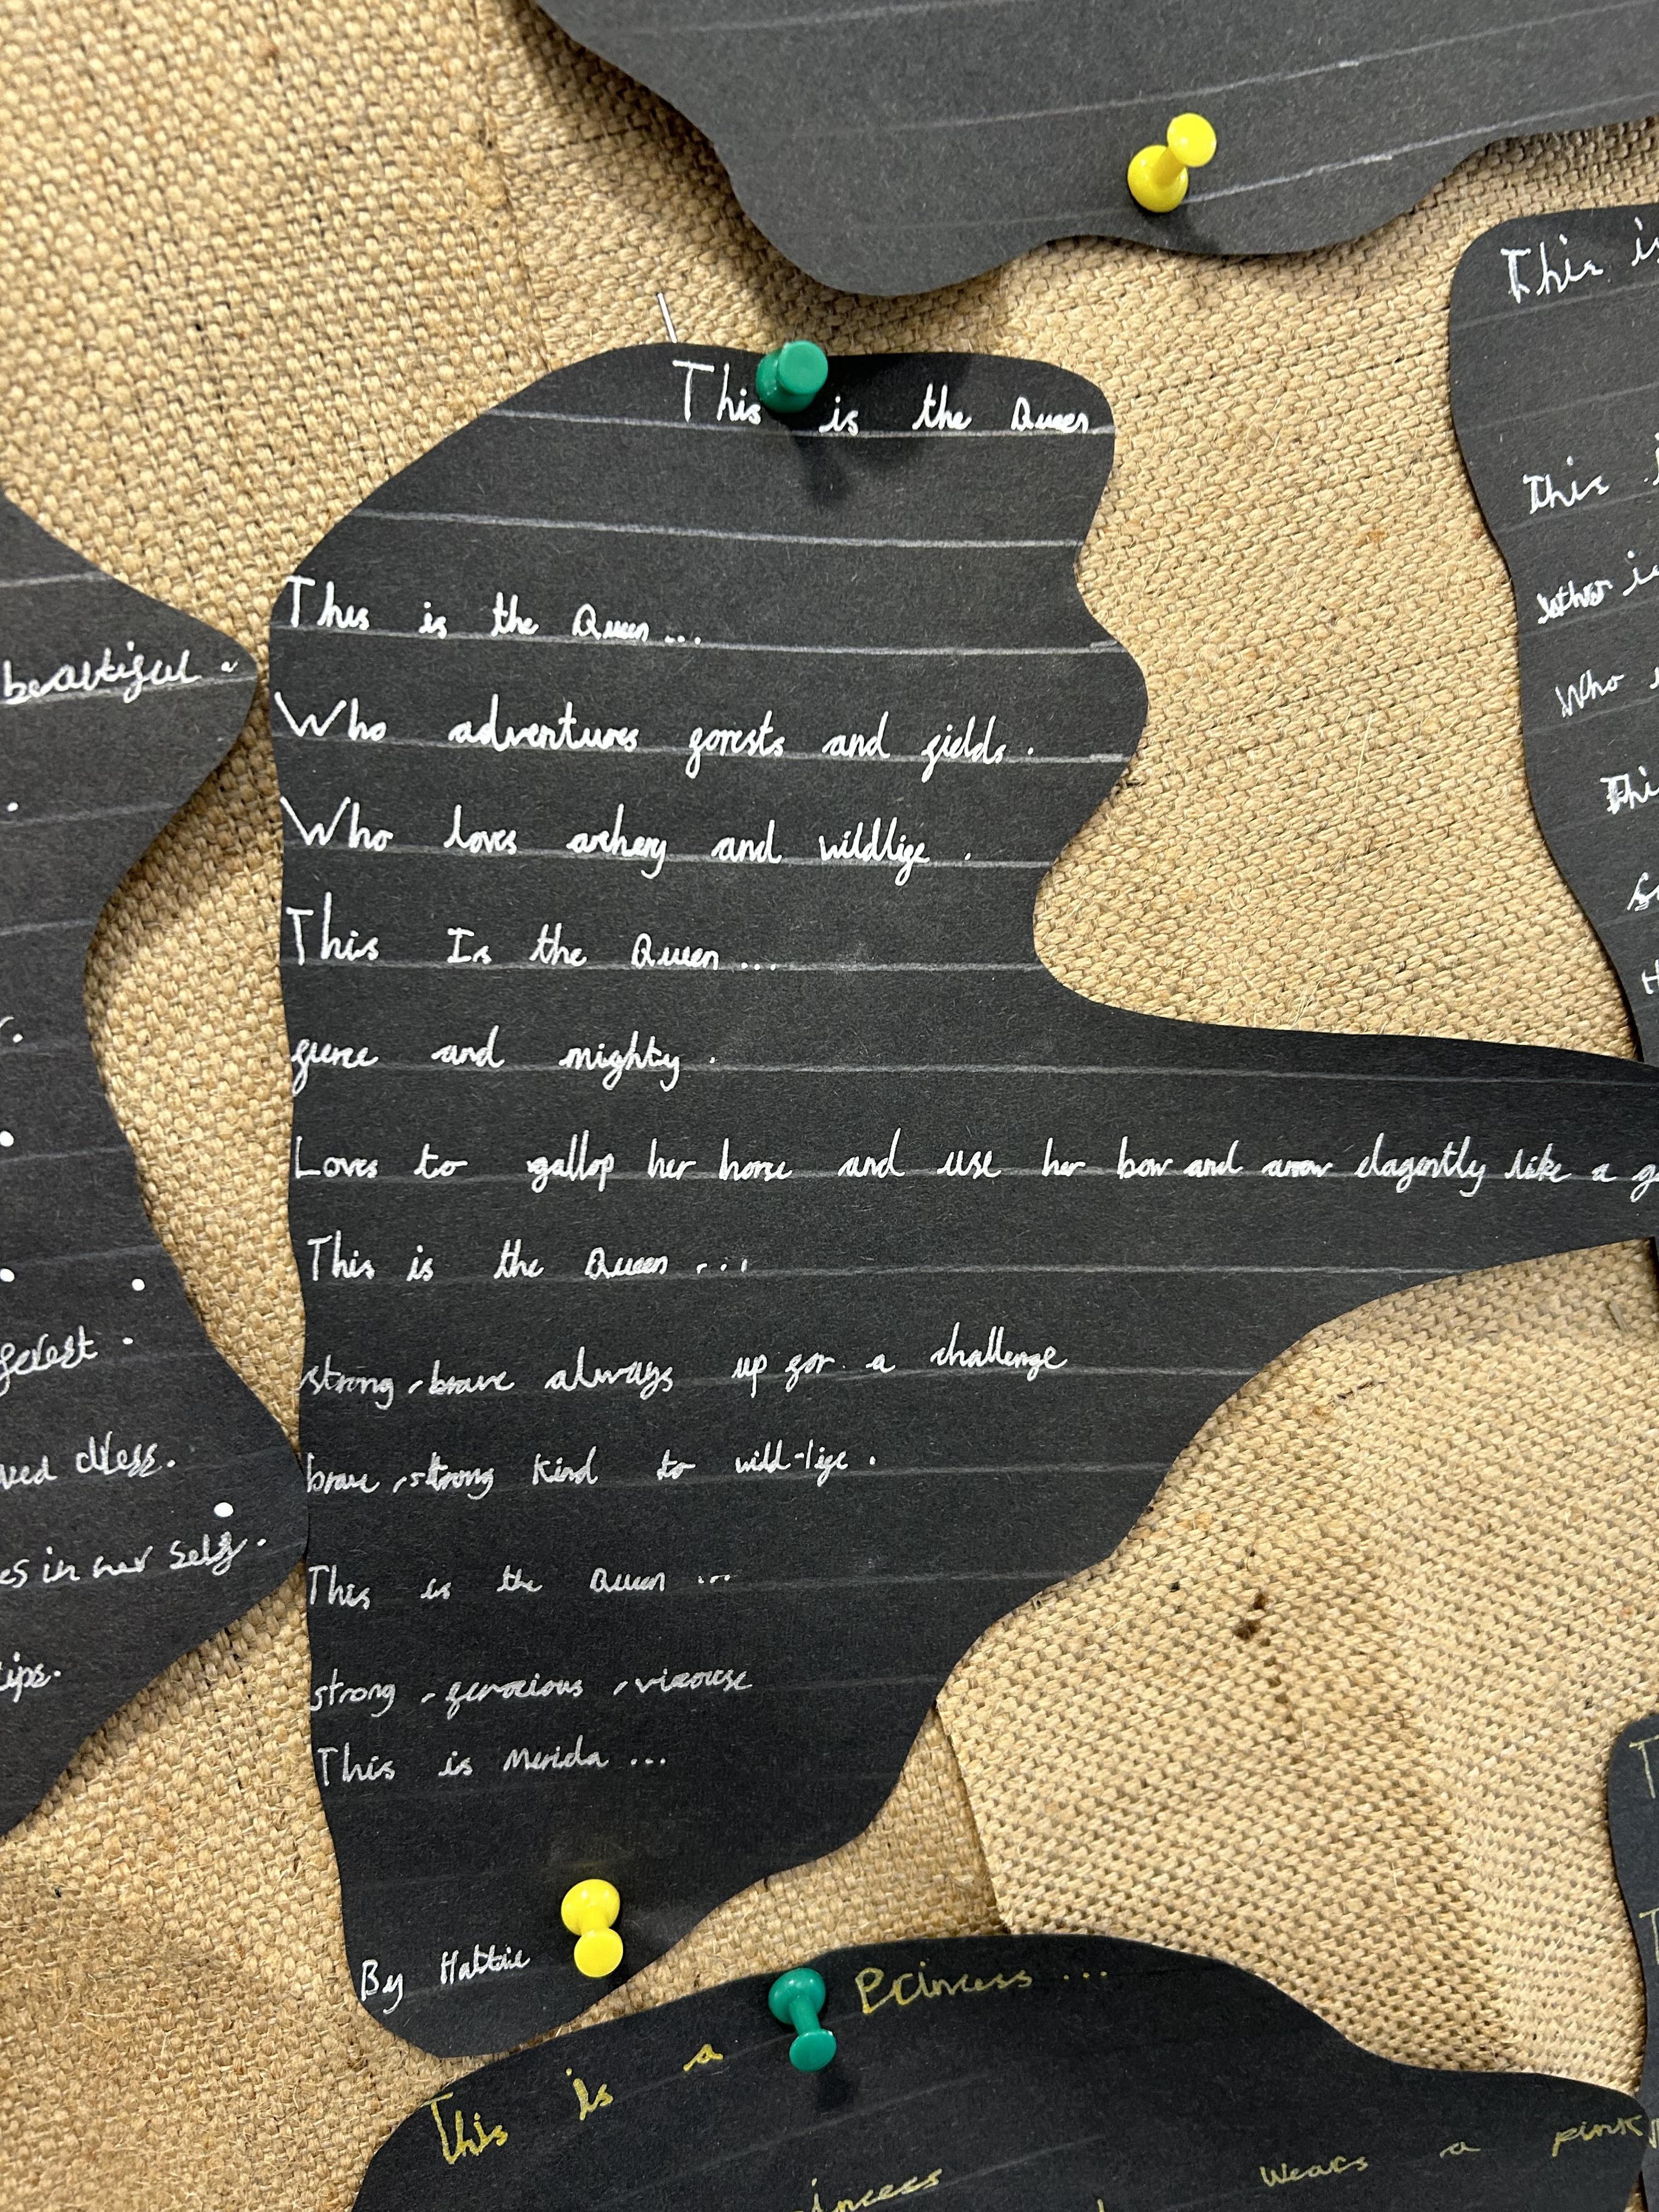 This is the Queen
This is the Queen...
Who adventures forests and fields.
Who loves archery and wildlife.
This Is the Queen...
fierce and mighty.
Loves to gallop her horse and use her bow and arrow elagently like a
This is the Queen...
strong, brave always up for a challenge
brave, strong kind to wild-life.
This is the Queen...
strong, ferocious, vicouse
This is Merida...
By Hattie
beautiful.
dress.
es in her self.
This is
This
Who
This is a Princess...
wears a pink